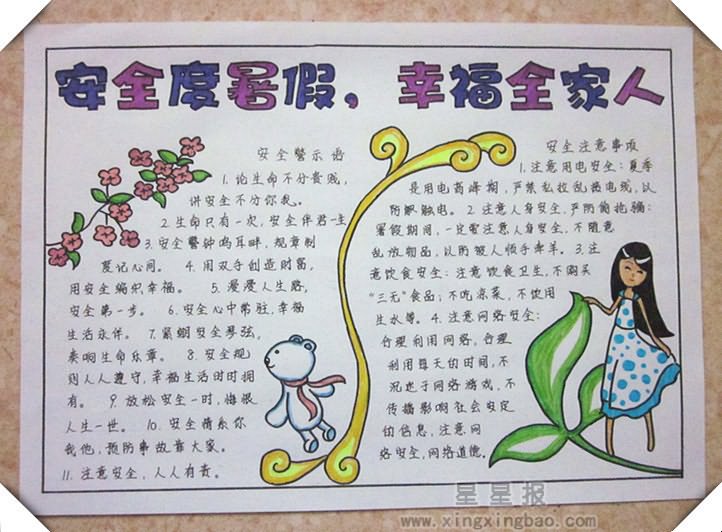 安全度暑假，幸福全家人
安全警示语
1.论生命不分贵贱，
讲安全不分你我。
2.生命只有一次，安全伴君一生
3.安全警钟鸣耳畔，规章制
度记心间。 4.用双手创造财富，
用安全编织幸福。 5.漫漫人生路，
安全第一步。 6.安全心中常驻，幸福
生活永伴。 7.紧绷安全琴弦，
奏响生命乐章。 8.安全规
则人人遵守，幸福生活时时拥
有。 9.放松安全一时，悔恨
人生一世。 10.安全情系你
我他，预防事故靠大家。
11.注意安全，人人有责。
安全注意事项
1.注意用电安全：夏季
是用电高峰期，严禁私拉乱搭电缆，以
防触电。2.注意人身安全，严防偷抢骗：
暑假期间，一定要注意人身安全，不随意
乱放物品，以防被人顺手牵羊。3.注
意饮食安全：注意饮食卫生，不购买
“三无”食品；不吃凉菜，不饮用
生水等。4.注意网络安全：
合理利用网络，合理
利用每天的时间，不
沉迷于网络游戏，不
传播影响社会安定
的信息，注意网
络安全，网络道德。
星星报
www.xingxingbao.com